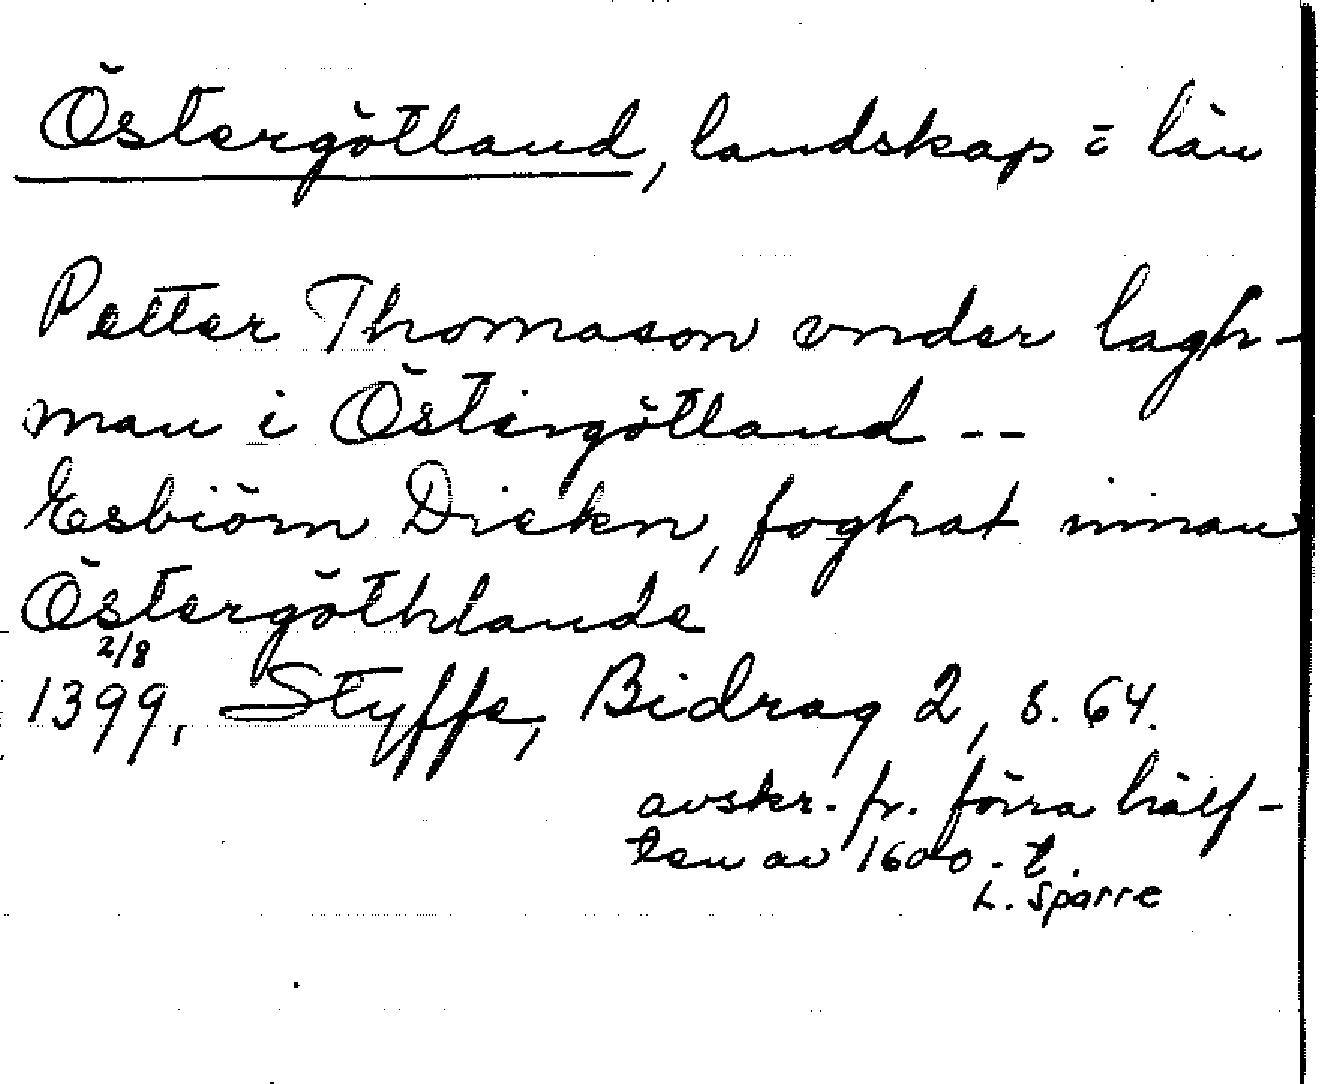 Östergötland, landskap = län
Petter Thomason vnder lagh-
man i Östergötland --
Esbiörn Diekn, foghat innan
Östergöthlande
2/8
1399, Styffe, Bidrag 2, s. 64.
avskr. fr. förra hälf-
ten av 1600-t.
L. Sparre